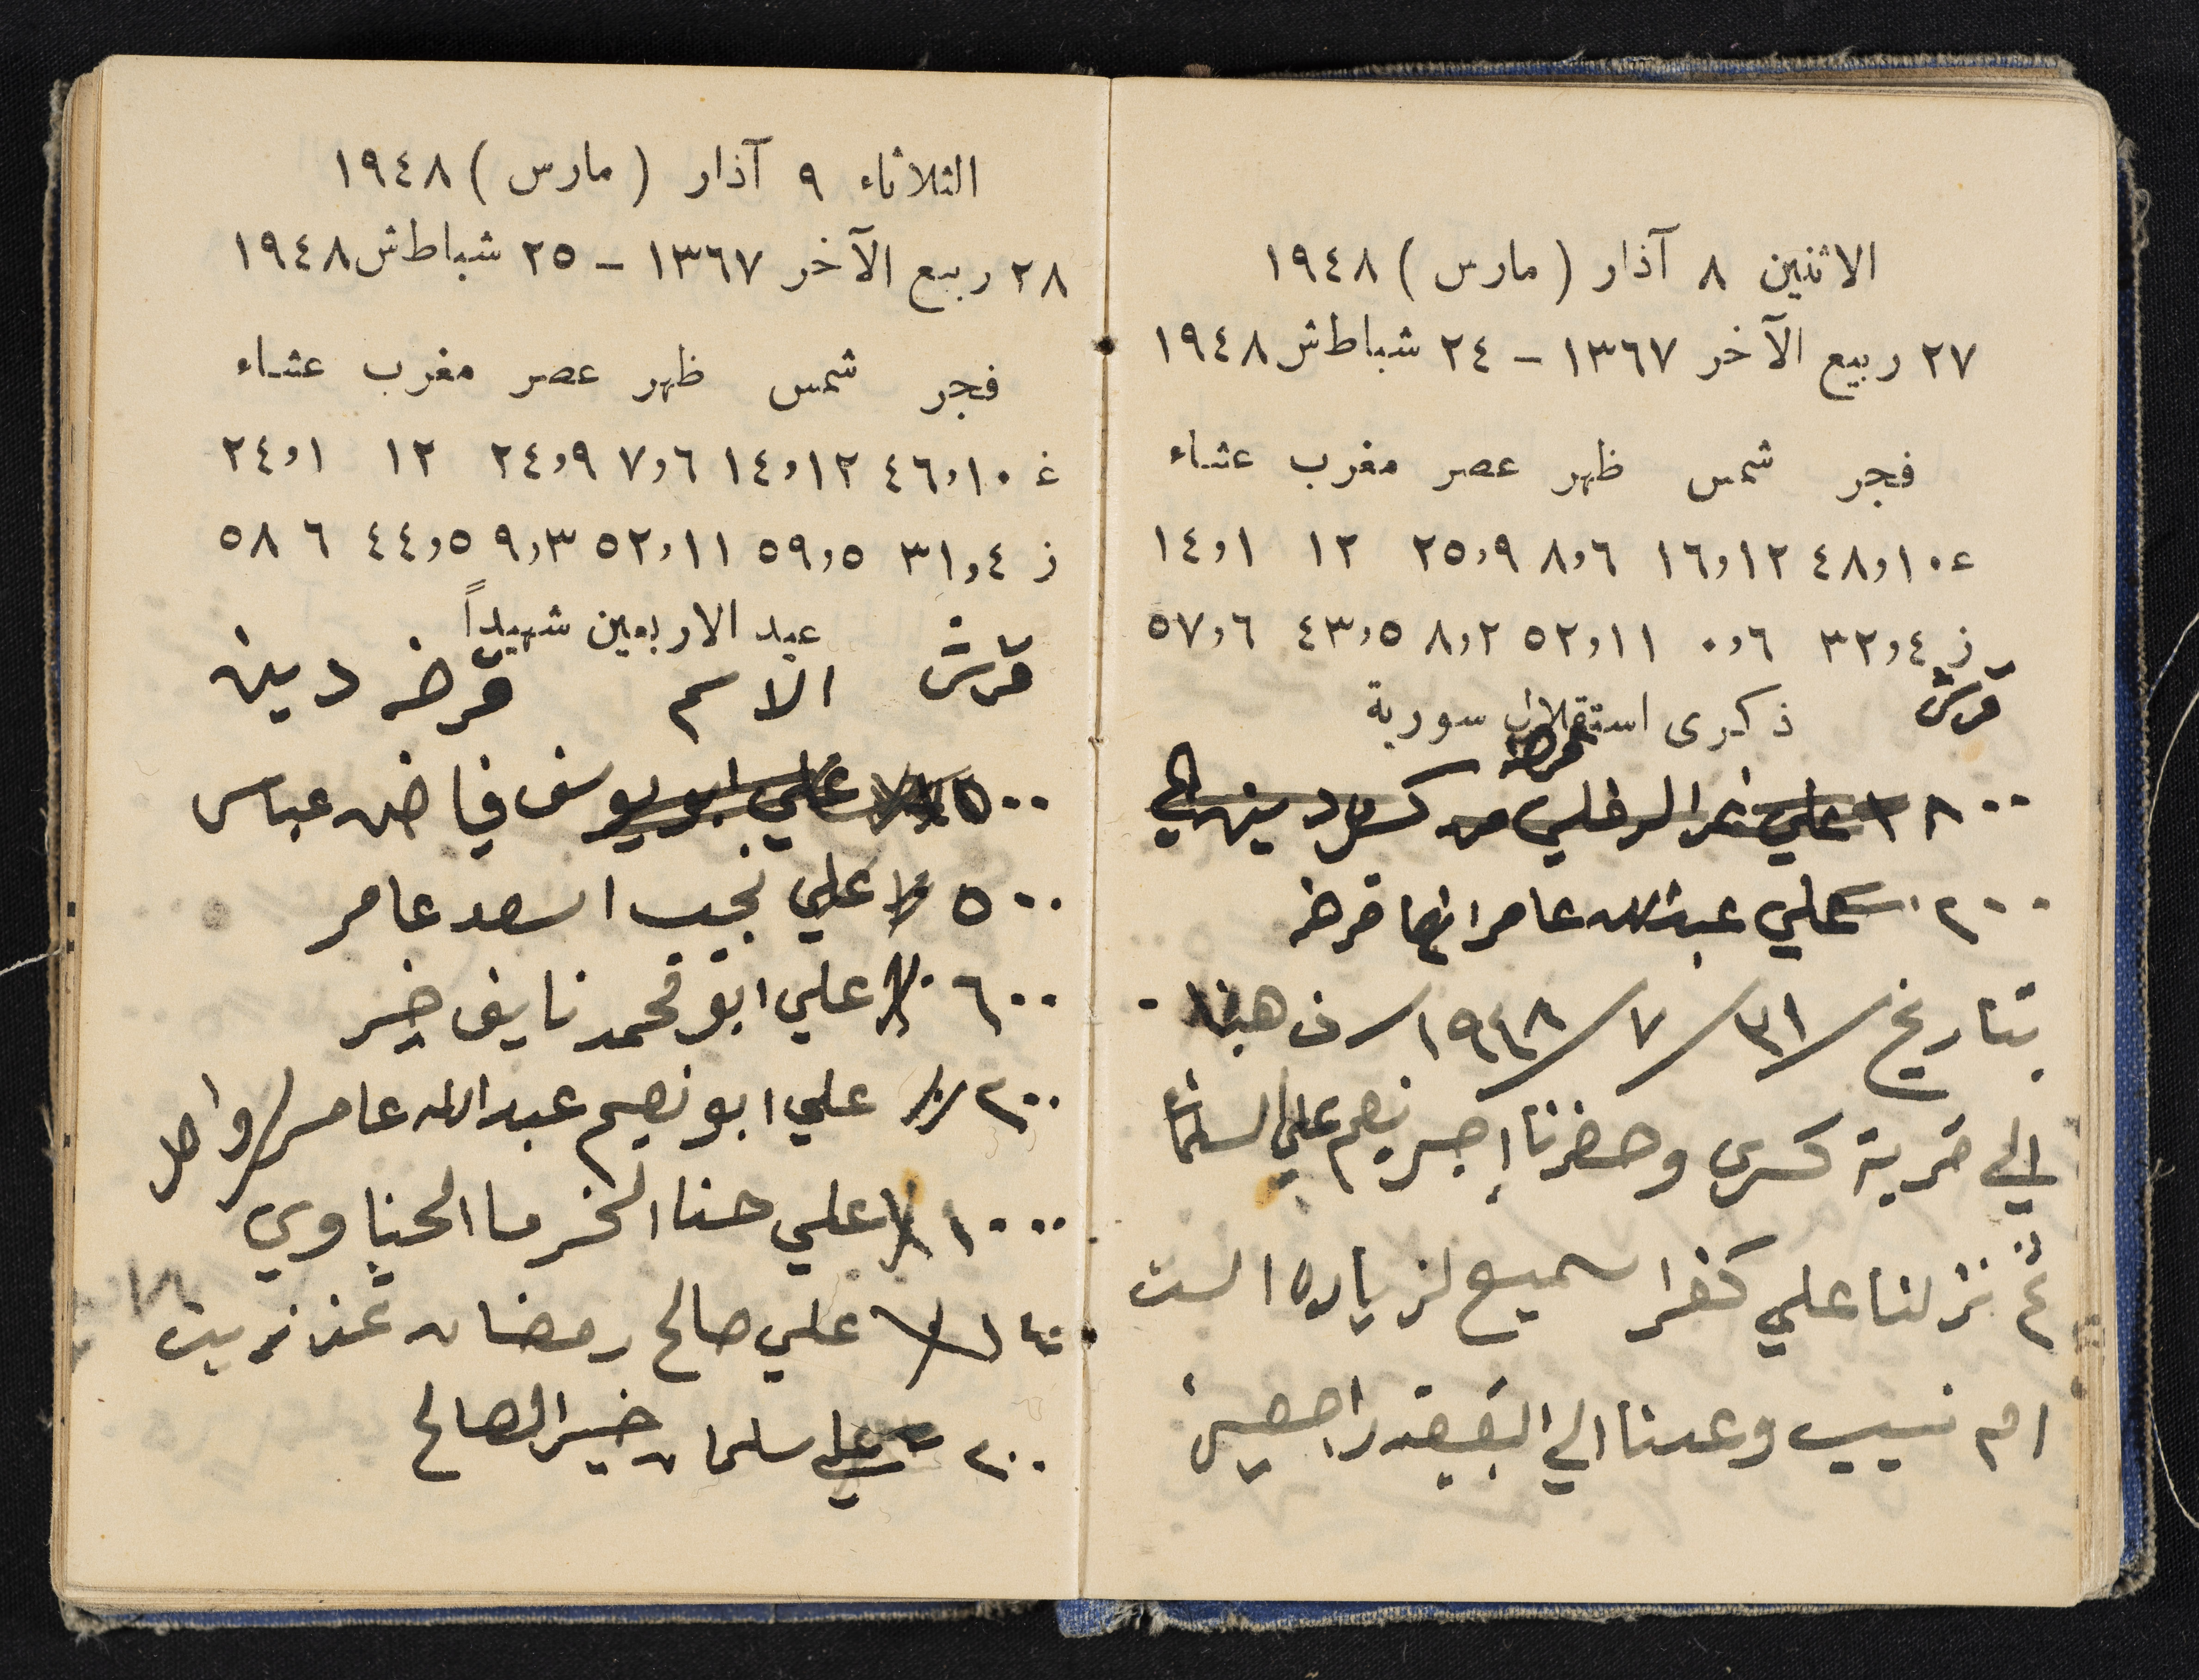 الاثنين ٨ آذار (مارس) ١٩٤٨
٢٧ ربيع الآخر ١٣٦٧ - ٢٤ شباط ش ١٩٤٨
فجر شمس ظهر عصر مغرب عشاء
غ ٤٨,١٠ ١٦,١٢ ٨,٦ ٢٥,٩ ١٢ ١٤,١
ز ٣٢,٤ ٠,٦ ٥٢,١١ ٨,٢ ٤٣,٥ ٥٧,٦
ذكرى استقلال سورية
قرش
١٨٠٠ علي من كسرى دينه الي
٢٠٠ علي عبدالله عامر انها قرضه
بتاريخ ٣١/٧/١٩٤٨
الي قرية كسرى وحضرنا إجر نصيم علي
ثم نزلنا علي كفرا سميع لزياره الست
ام نسيب وعدنا الي البقيعه راجعين
الثلاثاء ٩ آذار (مارس) ١٩٤٨
٢٨ ربيع الآخر ١٣٦٧ - ٢٥ شباط ش ١٩٤٨
فجر شمس ظهر عصر مغرب عشاء
غ ٤٦,١٠ ١٤,١٢ ٧,٦ ٢٤,٩ ١٢ ٢٤,١
ز ٣١,٤ ٥٩,٥ ٥٢,١١ ٩,٣ ٤٤,٥ ٦ ٥٨
عيد الاربعين شهيداً
قرش الاسم قرضه دينه
٥٠٠ علي ابو يوسف فياض عباس
٥٠٠ علي نجيب اسعد عامر
٦٠٠ علي ابو محمد نايف خير
٢٠٠ علي ابو نصيم عبدالله عامر
١٠٠٠ علي حنا الخرما الحناوي
علي صالح رمضان عن زيت
٢٠٠ علي سلمان خير الصالح